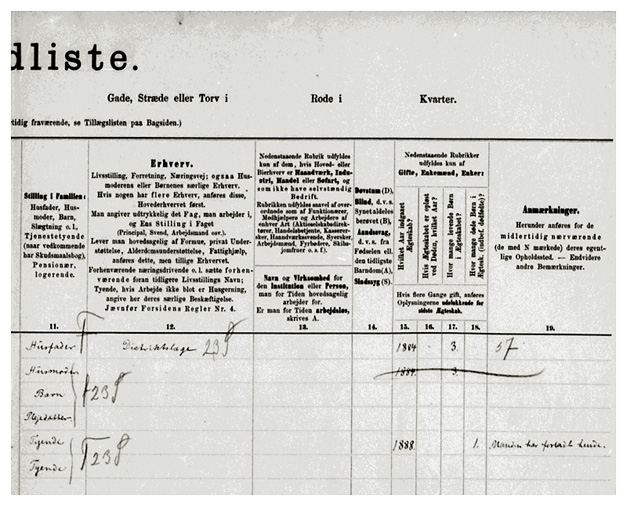 dliste.
Gade, Stræde eller Torv i Rode i Kvarter.
rtidig fraværende, se Tillægslisten paa Bagsiden.)
Stilling i Familien:
Husfader, Hus-
moder, Barn,
Slægtning o. l.,
Tjenestetyende
(naar vedkommende
har Skudsmaalsbog),
Pensionær,
logerende.
Erhverv.
Livsstilling, Forretning, Næringsvej; ogsaa Hus-
moderens eller Børnenes særlige Erhverv.
Hvis nogen har flere Erhverv, anføres disse,
Hovederhvervet først.
Man angiver udtrykkelig det Fag, man arbejder i,
og Ens Stilling i Faget
(Principal, Svend, Arbejdsmand osv.)
Lever man hovedsagelig af Formue, privat Under-
støttelse, Alderdomsunderstøttelse, Fattighjælp,
anføres dette, men tillige Erhvervet.
Forhenværende næringsdrivende o. l. sætte forhen-
værende foran tidligere Livsstillings Navn;
Tyende, hvis Arbejde ikke blot er Husgerning,
angive her deres særlige Beskæftigelse.
Jævnfør Forsidens Regler Nr. 4.
Nedenstaaende Rubrik udfyldes
kun af dem, hvis Hoved- eller
Bierhverv er Haandværk, Indu-
stri, Handel eller Søfart, og
som ikke have selvstændig
Bedrift.
Rubrikken udfyldes saavel af over-
ordnede som af Funktionærer,
Medhjælpere og Arbejdere af
enhver Art (Aktieselskabsdirek-
tører, Handelsbetjente, Kasserer-
sker, Haandværkssvende, Syersker,
Arbejdsmænd, Fyrbødere, Skibs-
jomfruer o. s. f.).
Navn og Virksomhed for
den Institution eller Person,
man for Tiden hovedsagelig
arbejder for.
Er man for Tiden arbejdsløs,
skrives A.
Døvstum (D),
Blind, d. v. s.
Synet aldeles
berøvet (B),
Aandssvag,
d. v. s. fra
Fødselen ell.
den tidligste
Barndom (A),
Sindssyg (S).
Nedenstaaende Rubrikker
udfyldes kun af
Gifte, Enkemænd, Enker:
Hvilket Aar indgaaet
Ægteskab?
Hvis Ægteskabet er opløst
ved Døden, hvilket Aar?
Hvor mange levende Børn
i Ægteskabet?
Hvor mange døde Børn i
Ægtesk. (indbef. dødfødte)?
Hvis flere Gange gift, anføres
Oplysningerne udelukkende for
sidste Ægteskab.
Anmærkninger.
Herunder anføres for de
midlertidig nærværende
(de med N mærkede) deres egent-
lige Opholdssted. — Endvidere
andre Bemærkninger.
11. 12. 13. 14. 15. 16. 17. 18. 19.
Husfader 1884 3 37
Husmoder 1884 3
Barn 23
Plejedatter
Tyende 1888 1. Manden har forladt hende.
Tyende 23